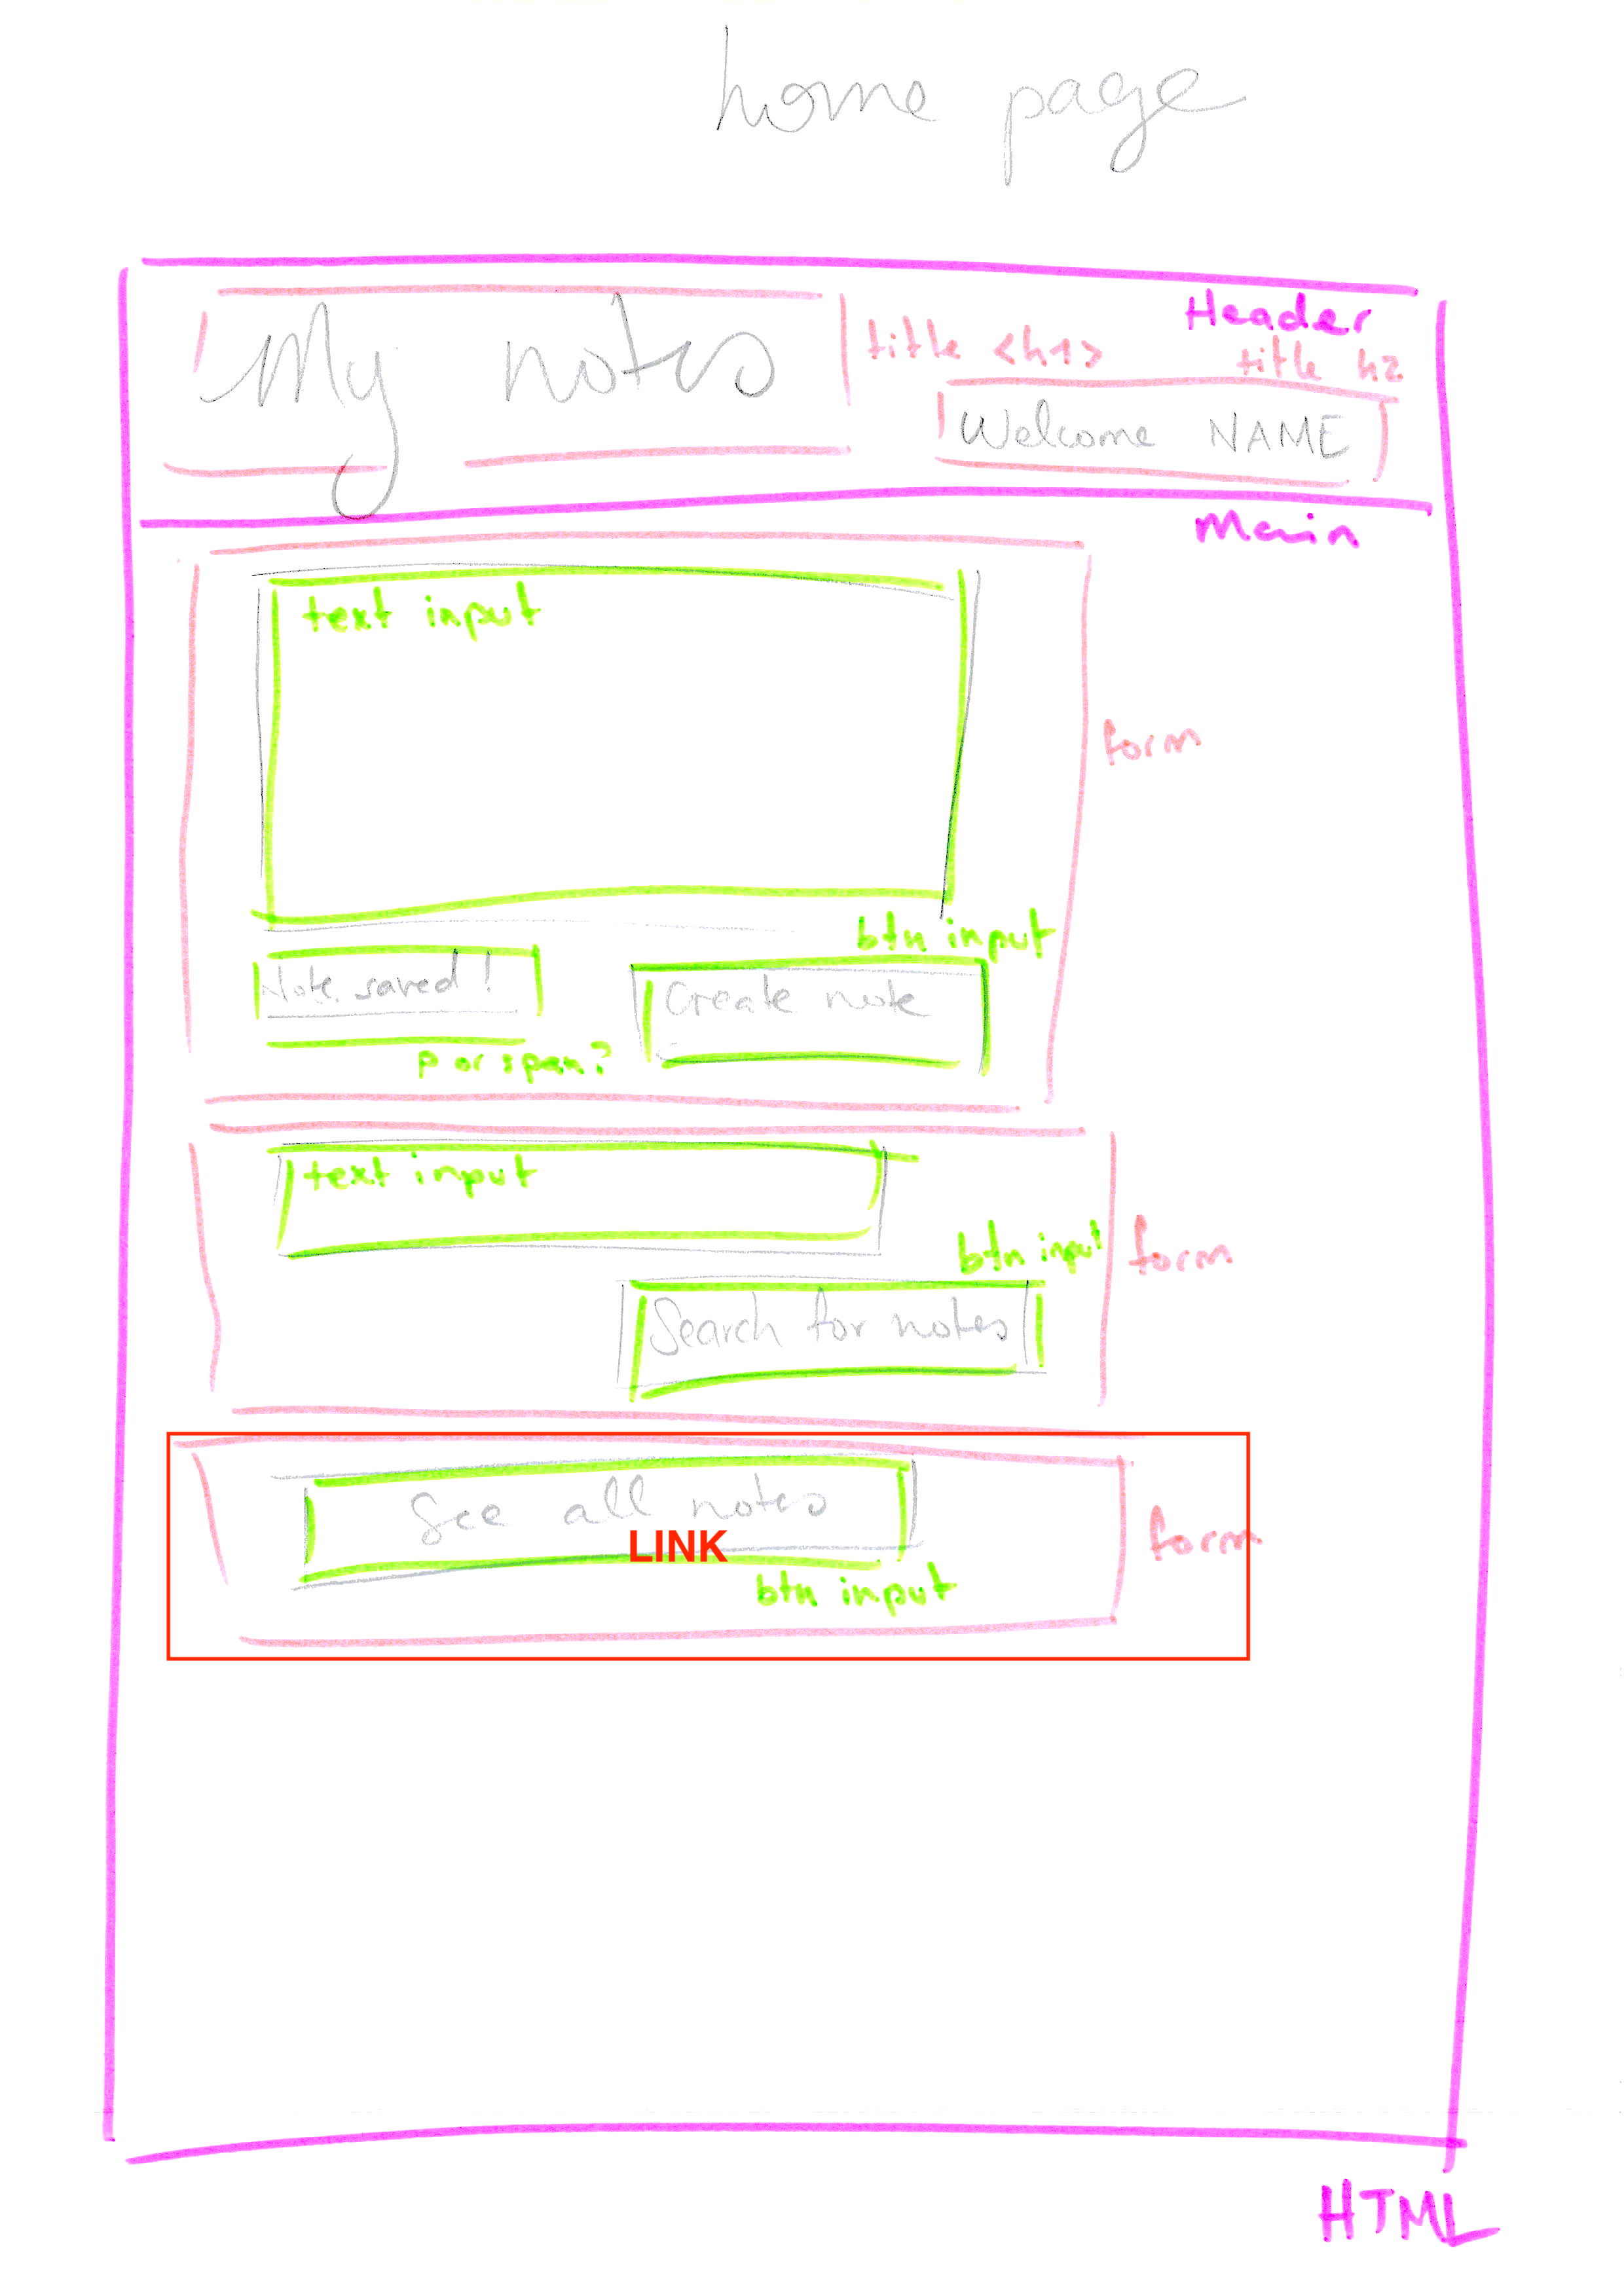 home page
Header
My notes
title <h1>
title h2
Welcome NAME
Main
text input
form
btn input
Note saved!
Create note
p or span?
text input
btn input
form
Search for notes
See all notes
LINK
form
btn input
HTML